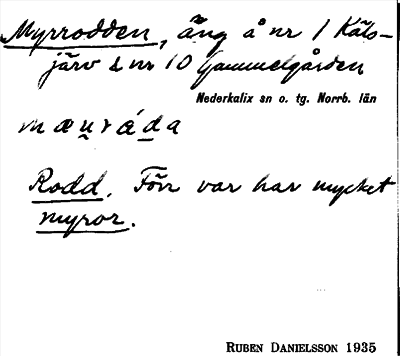 Myrrodden, äng å nr 1 Käls-
järv & nr 10 Gammelgården
Nederkalix sn o. tg. Norrb. län
mæṳrá́da
Rodd. Förr var här mycket
myror.
RUBEN DANIELSSON 1935